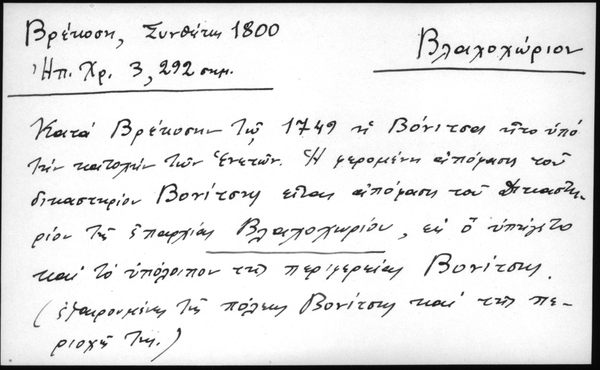 Βρέκοση, Συνθέτις 1800
Ἠπ. Χρ. 3, 292 σημ.
Βλαχοχώριον
Κατά Βρέκοσην τῷ 1749 ἡ Βόνιτσα ἦτο ὑπό
τήν κατοχήν τῶν Ἑνετῶν. Ἡ φερομένη ἀπόφασις τοῦ
δικαστηρίου Βονίτσης εἶναι ἀπόφασις τοῦ Δικαστη-
ρίου τῆς ἐπαρχίας Βλαχοχωρίου, εἰς ὅ ὑπήγετο
καί τό ὑπόλοιπον τῆς περιφερείας Βονίτσης.
(ἐξαιρουμένης τῆς πόλεως Βονίτσης καί τῆς πε-
ριοχῆς της.)